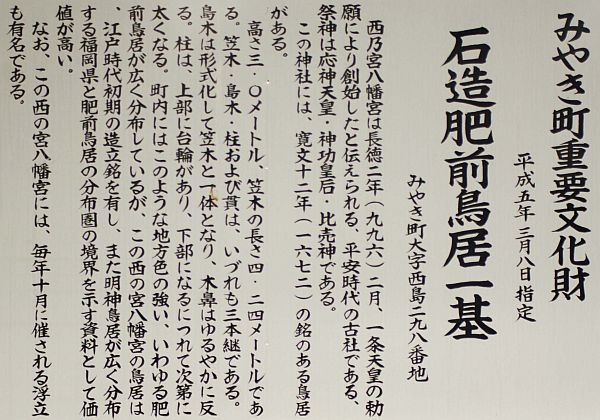 みやき町重要文化財
平成五年 三月八日指定
石造肥前鳥居一基
みやき町大字西島二九八番地
西乃宮八幡宮は長徳二年（九九六）二月、一条天皇の勅
願により創始したと伝えられる、平安時代の古社である、
祭神は応神天皇・神功皇后・比売神である。
この神社には、寛文十二年（一六七二）の銘のある鳥居
がある。
高さ三・〇メートル、笠木の長さ四・二四メートルであ
る。笠木・島木・柱および貫は、いづれも三本継である。
島木は形式化して笠木と一体となり、木鼻はゆるやかに反
る。柱は、上部に台輪があり、下部になるにつれて次第に
太くなる。町内にはこのような地方色の強い、いわゆる肥
前鳥居が広く分布しているが、この西の宮八幡宮の鳥居は
、江戸時代初期の造立銘を有し、また明神鳥居が広く分布
する福岡県と肥前鳥居の分布圏の境界を示す資料として価
値が高い。
なお、この西の宮八幡宮には、毎年十月に催される浮立
も有名である。